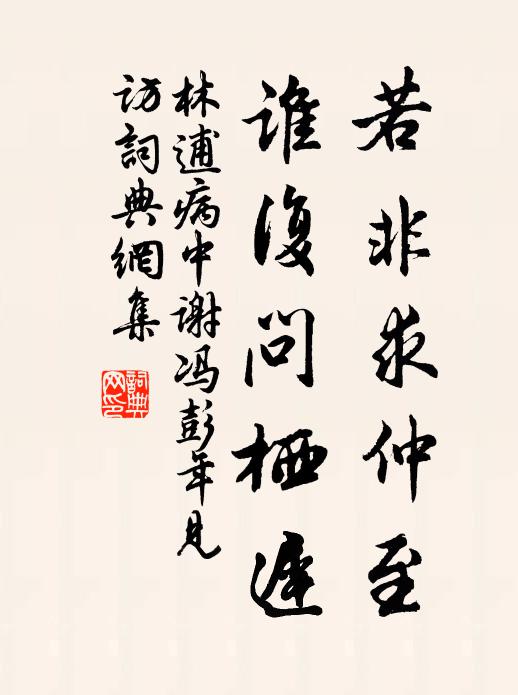 若非求仲至
誰復問栖遲
林逋病中谢冯彭年見
訪詞典網集
詞典
网印